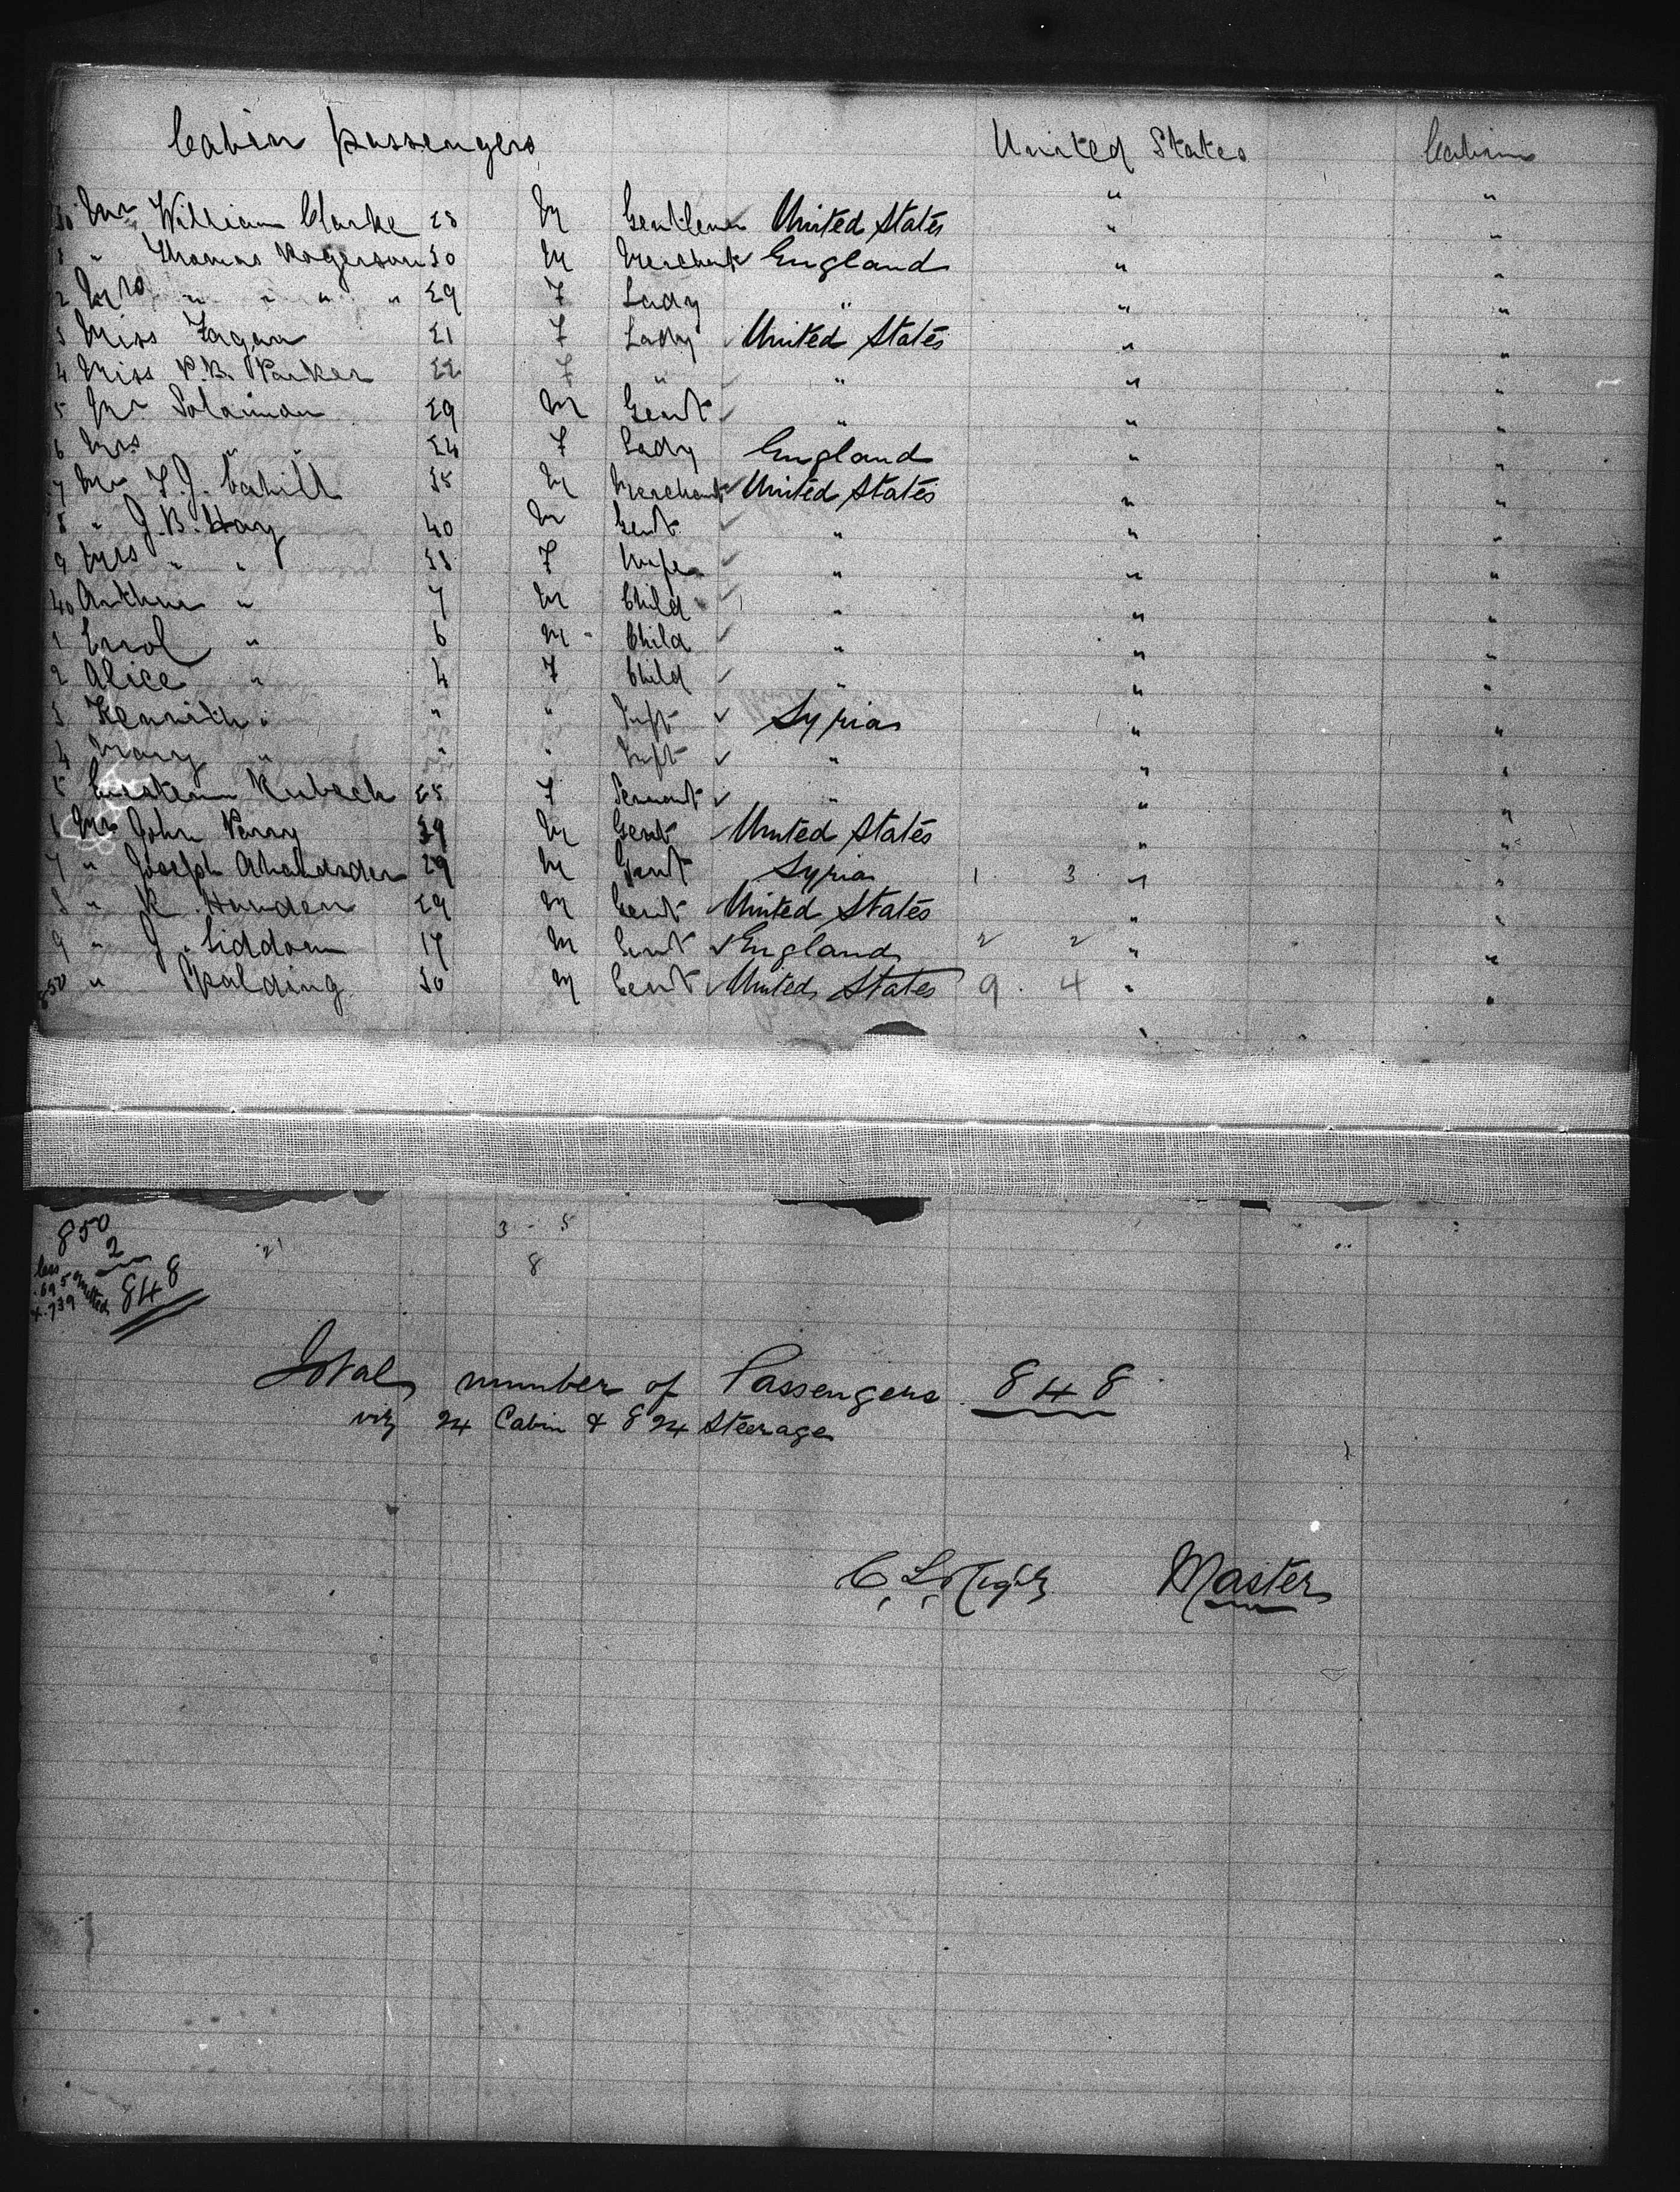 Cabin Passengers United States Cabin
30 Mr William Clarke 28 M Gentleman United States " "
1 " Thomas Rogerson 30 M Merchant England " "
2 Mrs " " " " 29 F Lady " " "
3 Miss Fagan 21 F Lady United States " "
4 Miss P.B. Parker 22 F " " " "
5 Mr Solaiman 29 M Gent " " "
6 Mrs " " 24 F Lady England " "
7 Mr F.J. Cahill 35 M Merchant United States " "
8 " J.B. Hay 40 M Gent " " "
9 Mrs " " 38 F Wife " " "
40 Arthur " 7 M Child " " "
1 Errol " 6 M Child " " "
2 Alice " 4 F Child " " "
3 Kennith " " " Inft Syria " "
4 Mary " " " Inft " " "
5 Kubech 25 F Servant " " "
6 Mr John Perry 39 M Gent United States " "
7 " Joseph 29 M Gent Syria 1 3 " "
8 " R. Harden 29 M Gent United States " "
9 " J. Siddom 17 M Gent England 2 2 " "
850 " Spalding 30 M Gent United States 9 4 " "
850 21 3 - 5
2 8
less 695 & 739 omitted 848
Total number of Passengers 848
viz 24 Cabin & 824 Steerage
Master